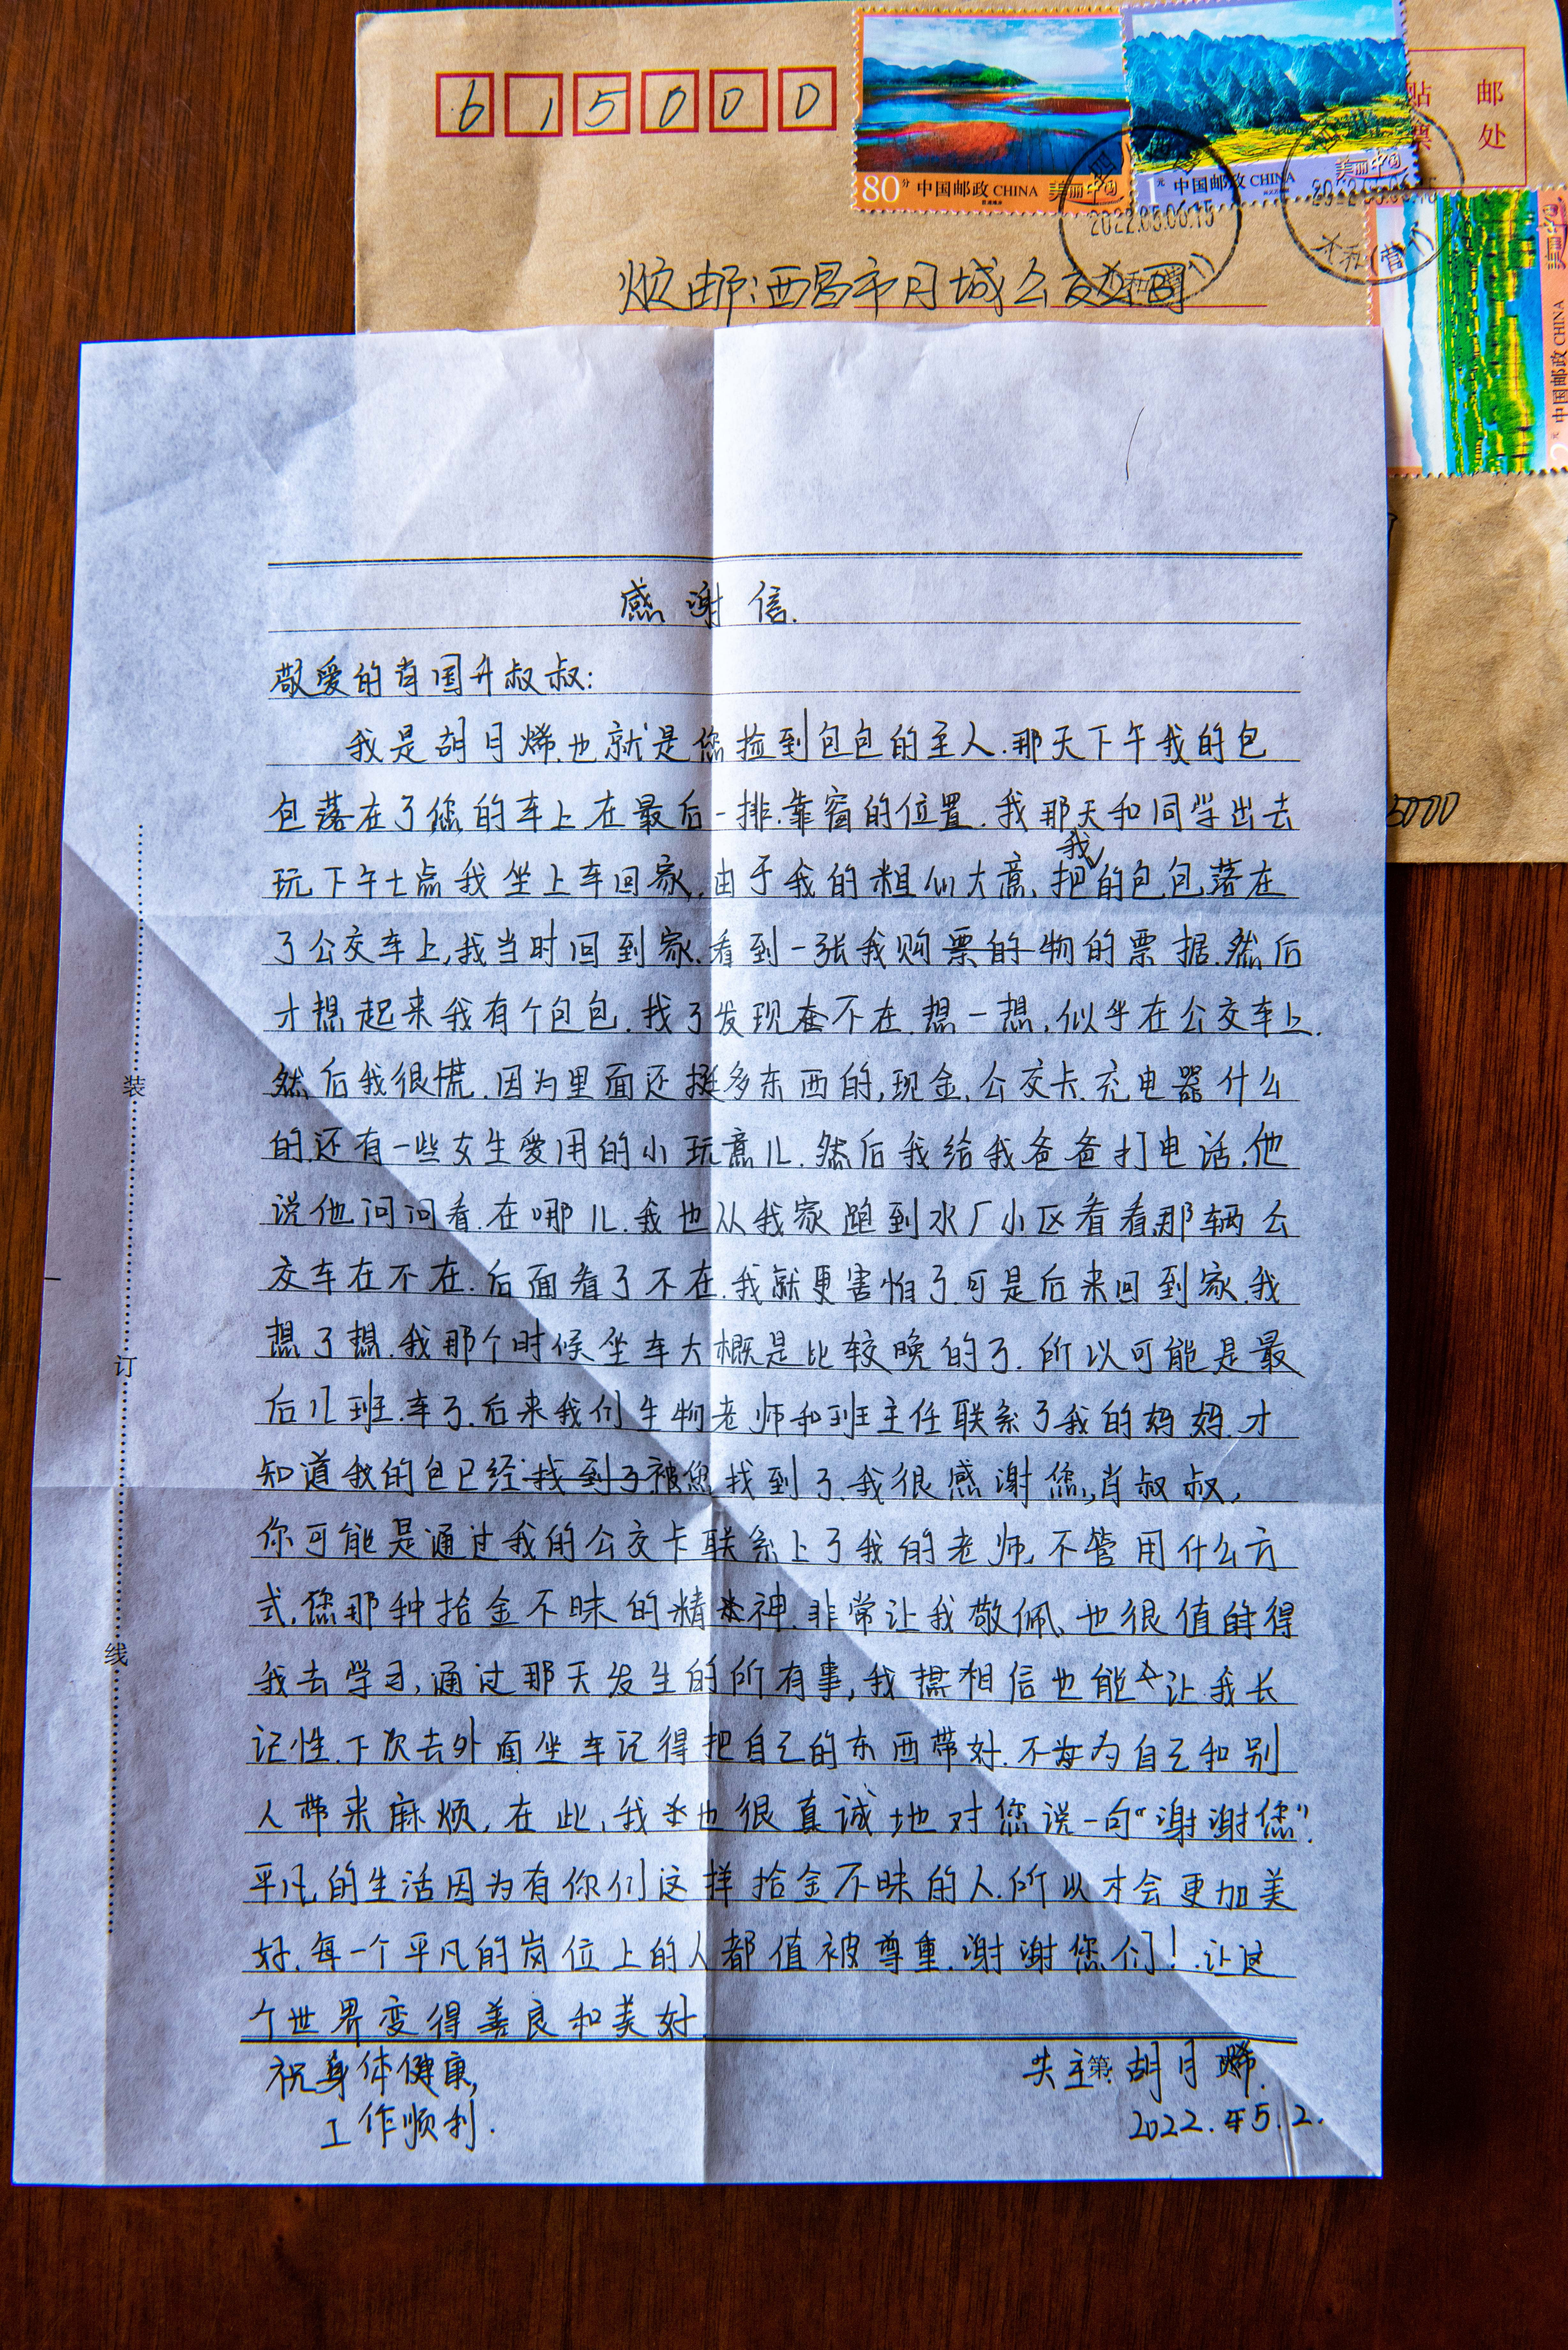 615000
贴 邮
票 处
80分 中国邮政 CHINA 美丽中国
1元 中国邮政 CHINA 美丽中国
2022.05.06.15
2022.05.06.15
中国邮政 CHINA
烦邮:西昌市月城公交公司
5000
感谢信.
敬爱的肖国升叔叔:
我是胡月烯.也就是您捡到包包的主人.那天下午我的包
包落在了您的车上.在最后一排.靠窗的位置.我那天和同学出去
玩下午七点我坐上车回家,由于我的粗似大意,把我的包包落在
了公交车上,我当时回到家.看到一张我购票的物的票据.然后
才想起来我有个包包.找了发现不在.想一想,似乎在公交车上.
然后我很慌.因为里面还挺多东西的,现金,公交卡.充电器什么
的.还有一些女生爱用的小玩意儿.然后我给我爸爸打电话.他
说他问问看.在哪儿.我也从我家跑到水厂小区看看那辆公
交车在不在.后面看了不在.我就更害怕了.可是后来回到家.我
想了想.我那个时候坐车大概是比较晚的了.所以可能是最
后几班.车了.后来我们生物老师和班主任联系了我的妈妈.才
知道我的包已经找到了被您找到了.我很感谢您,肖叔叔,
你可能是通过我的公交卡联系上了我的老师,不管用什么方
式,您那种拾金不昧的精神.非常让我敬佩、也很值得
我去学习,通过那天发生的所有事,我相信也能让我长
记性.下次去外面坐车记得把自己的东西带好.不为自己和别
人带来麻烦,在此,我也很真诚地对您说一句“谢谢您”.
平凡的生活因为有你们这样拾金不昧的人.所以才会更加美
好.每一个平凡的岗位上的人都值被尊重.谢谢您们!.让这
个世界变得善良和美好
祝身体健康,
工作顺利.
失主第:胡月烯.
2022.年5.2.
装
订
线